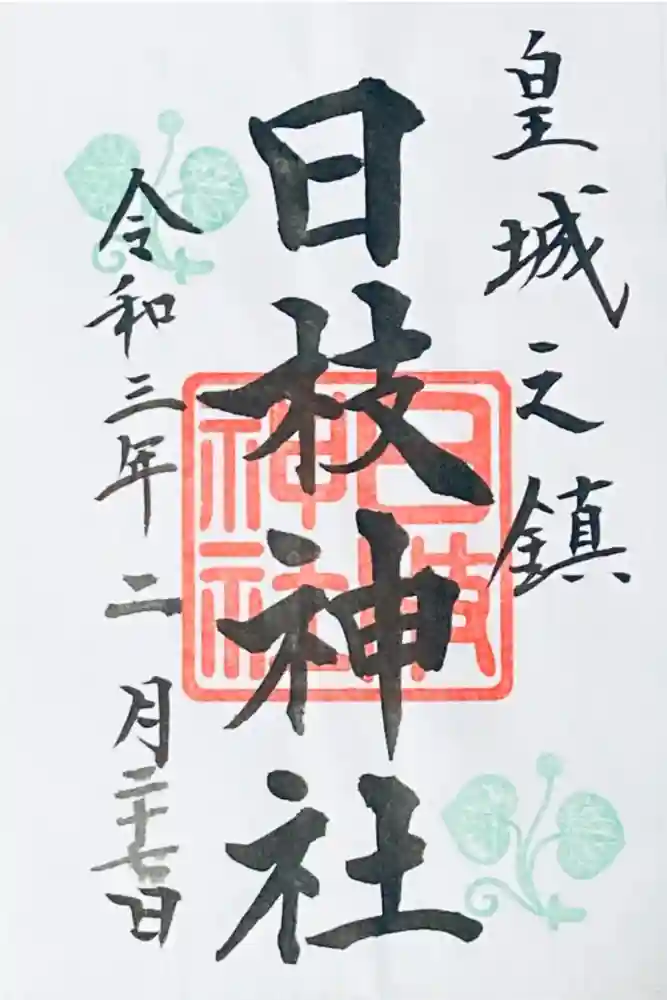 皇城之鎮
日枝神社
日枝神社
令和三年二月二十七日